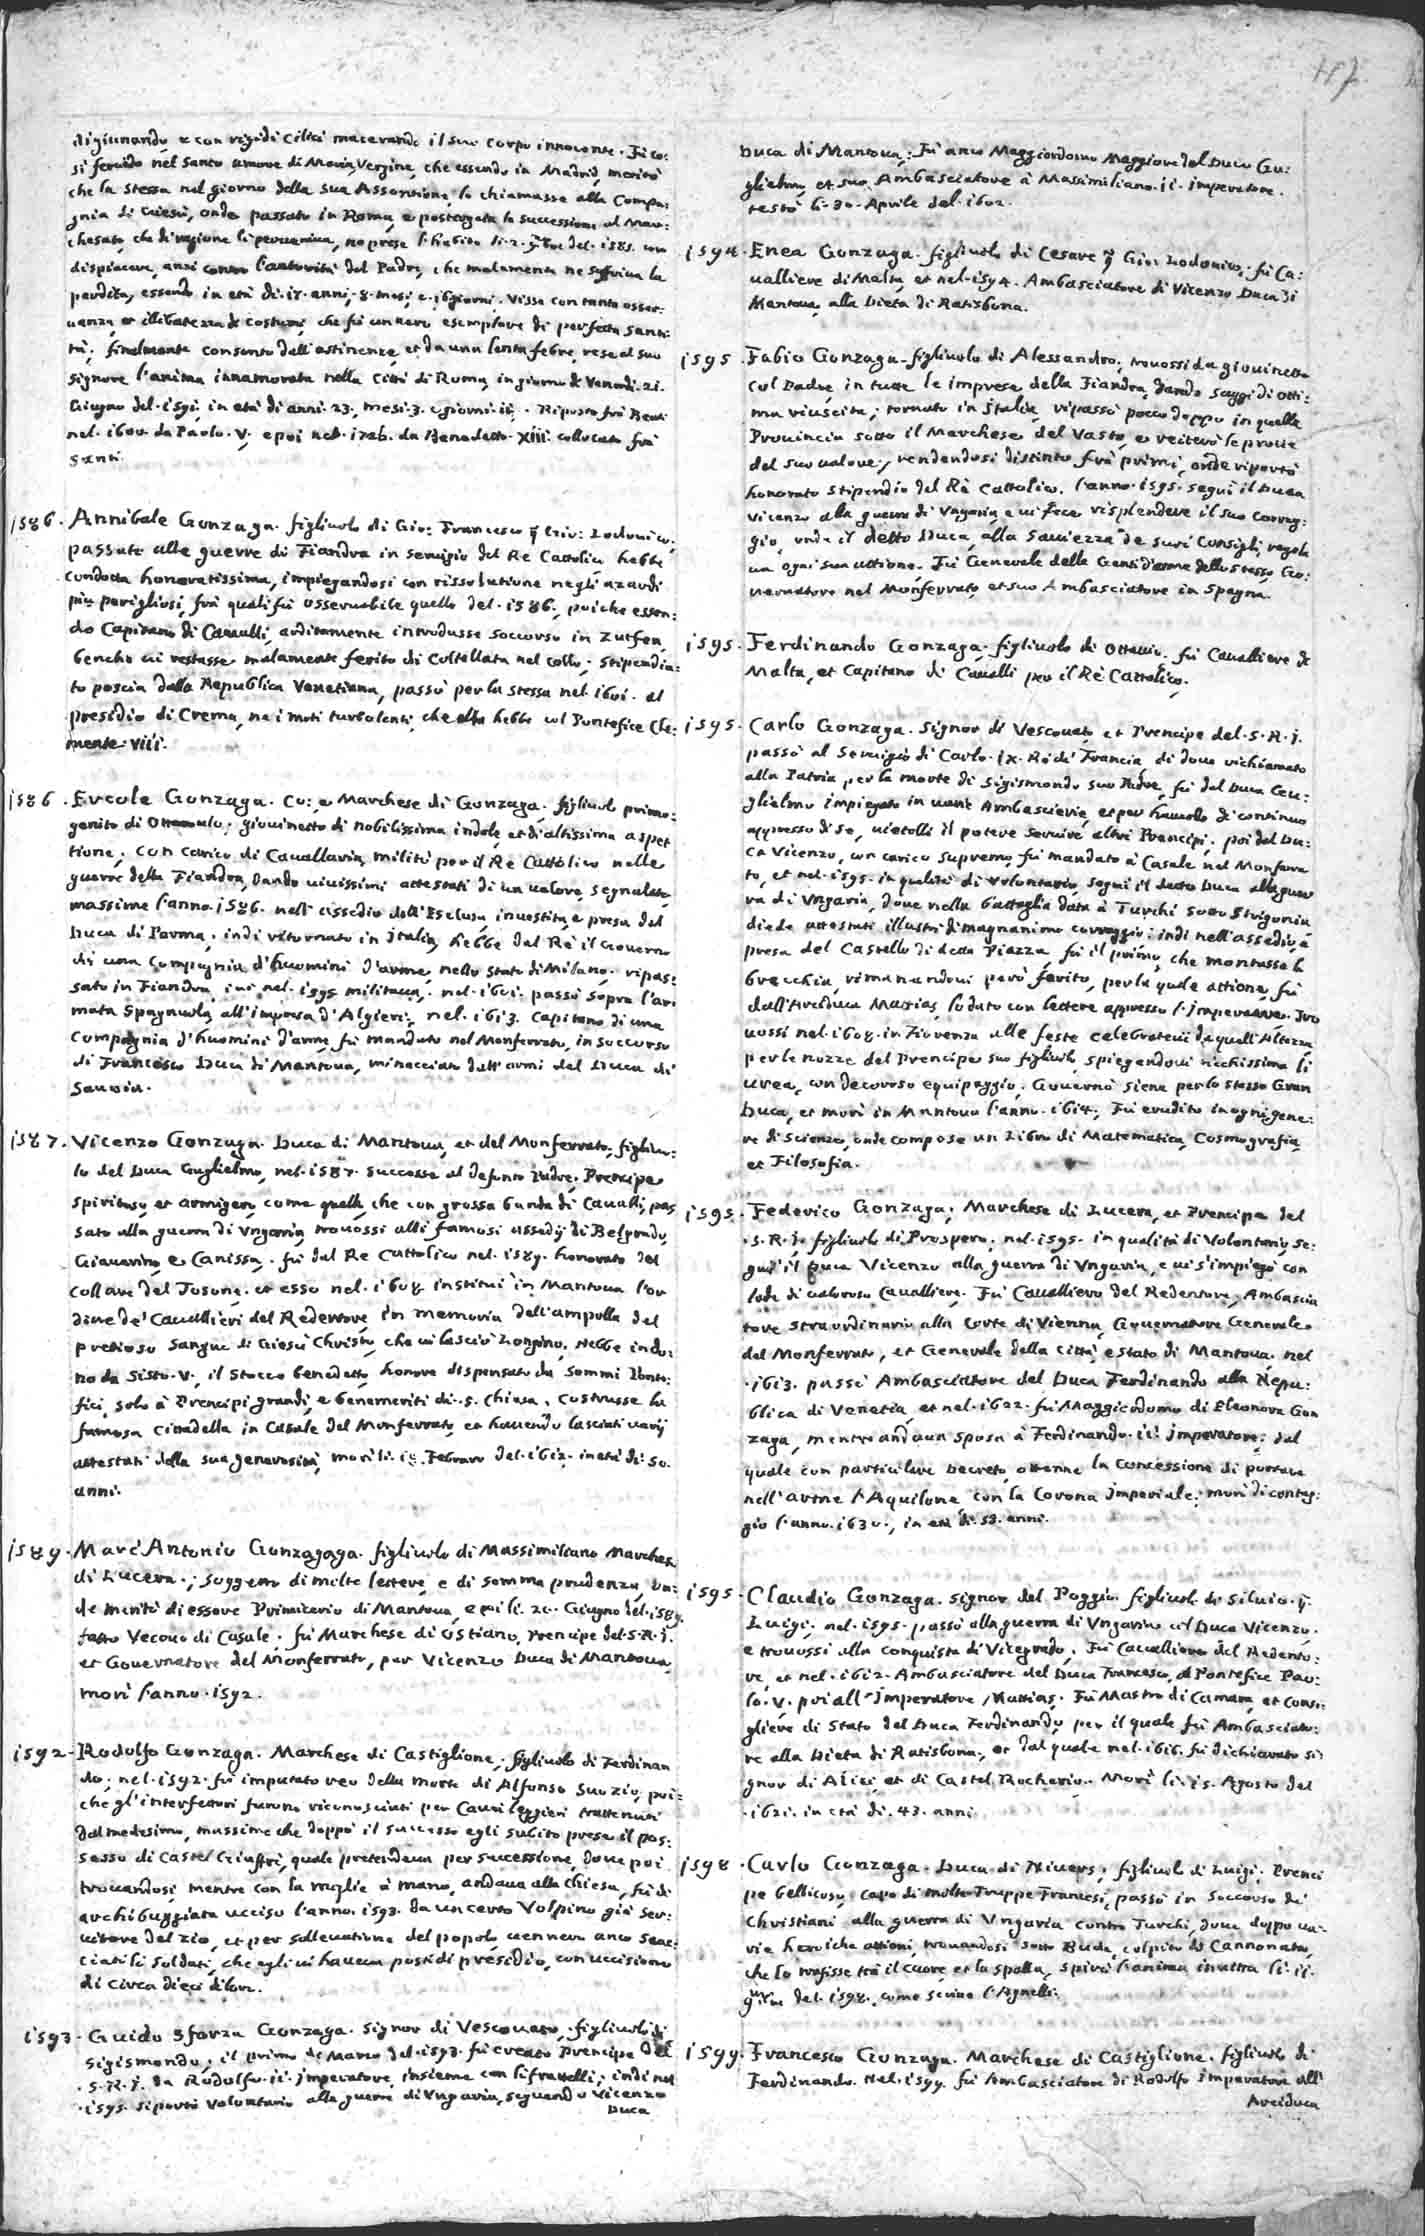 digiunando, e con rigidi Cilici macerando il suo Corpo innocente. Fù co:
si fervido nel Santo amore di Maria Vergine, che essendo in Madrid, meritò
che la stessa nel giorno della sua Assontione, lo chiamasse alla Compa:
gnia di Giesù, onde passato in Roma, e postergata la successione al Mar:
chesato, che di ragione li perveniva, ne prese l'habito li. 2. 9bre del. 1585. con
dispiacere, anzi contro l'autorità del Padre, che malamente ne soffriva la
perdita, essendo in età di. 17. anni. 8. mesi, e. 16 giorni. Visse con tanta osser:
uanza, et illibatezza de costumi, che fù un vero esemplare di perfetta Santi
tà; finalmente consunto dall'astinenze, et da una lenta febre, rese al suo
Signore l'anima innamorata nella Città di Roma, in giorno di Venerdi. 21.
Giugno del. 1591. in età di anni. 23, mesi. 3. e giorni. 11. Riposto frà Beati
nel. 1600. da Paolo. V. e poi nel. 1726. da Benedetto. XIII. collocato frà
Santi.
1586. Annibale Gonzaga. figliuolo di Gio: Francesco q Gio: Lodovico.
passato alle guerre di Fiandra in servigio del Re Cattolico hebbe
Condotta honoratissima, impiegandosi con rissolutione negli azardi
più perigliosi, frà quali fù osservabile quello del. 1586. poiche essen:
do Capitano di Cavalli, arditamente introdusse soccorso in Zutfen,
benche ui restasse malamente ferito di Coltellata nel collo. Stipendia:
to poscia dalla Republica Venetiana, passò per la stessa nel. 1601. al
presidio di Crema, ne i moti turbolenti, che ella hebbe col Pontefice Cle:
mente. VIII.
1586. Ercole Gonzaga. Co: e Marchese di Gonzaga. figliuolo primo:
genito di giovinetto di nobilissima indole, et di altissima aspet
tione; con carico di Cavallaria, militò per il Re Cattolico nelle
guerre della Fiandra, dando vivissimi attestati di un valore segnalato,
massime l'anno. 1586. nell'assedio dell'Esclusa investita, e presa dal
Duca di Parma. indi ritornato in Italia, hebbe dal Re il Governo
di una Compagnia d'huomini d'arme, nello Stato di Milano. ripas:
sato in Fiandra, ivi nel. 1595 militava. nel. 1601. passò sopra l'ar
mata Spagnuola all'impresa d'Algieri. nel. 1613. Capitano di una
Compagnia d'huomini d'arme, fù mandato nel Monferrato, in soccorso
di Francesco Duca di Mantova, minacciato dall'armi del Duca di
Savoia.
1587. Vicenzo Gonzaga. Duca di Mantova, et del Monferrato, figliuo:
lo del Duca Guglielmo, nel. 1587. successe al defonto Padre. Prencipe
spiritoso, et armigero, come quello, che con grossa banda di Cavalli, pas
sato alla guerra di Vngaria, trovossi alli famosi assedij di Belgrado,
Giavarino, e Canissa. fù dal Re Cattolico nel. 1589. honorato del
collare del Tosone. et esso nel. 1608 institui in Mantova l'or
dine de' Cavallieri del Redentore, in memoria dell'ampolla del
pretioso Sangue di Giesù Christo, che ui lasciò Longino. Hebbe in do:
no da Sisto. V. il Stocco benedetto, honore dispensato da Sommi Ponte:
fici, solo à Prencipi grandi, e benemeriti di. S. Chiesa. Costrusse la
famosa Cittadella in Casale del Monferrato, et havendo lasciati varij
attestati della sua generosità, morì li. 18. Febraro del. 1612. in età di 50.
anni.
1589. Marc'Antonio Gonzagaga. figliuolo di Massimiliano Marchese
di Lucera.; soggetto di molte lettere, e di somma prudenza, on:
de meritò di essere Primicerio di Mantova, e poi li. 20. Giugno del. 1589.
fatto Vecovo di Casale. fù Marchese di Ostiano, Prencipe del. S. R. I.
et Governatore del Monferrato, per Vicenzo Duca di Mantova,
morì l'anno. 1592.
1592. Rodolfo Gonzaga. Marchese di Castiglione. figliuolo di Ferdinan
do; nel. 1592. fù imputato reo della morte di Alfonso suo zio, poi:
che gl'interfettori furono riconosciuti per Cavai leggieri trattenuti
dal medesimo, massime che doppò il successo egli subito prese il pos:
sesso di Castel Giuffrè, quale pretendeva per successione, dove poi
trovandosi, mentre con la moglie à mano, andava alla chiesa, fù di
archibuggiata ucciso l'anno. 1593. da un certo Volpino già ser:
vitore del zio, et per sollevatione del popolo uennero anco scac:
ciati li soldati, che egli ui haveva posti di presidio, con uccisione
di circa dieci di loro.
1593. Guido Sforza Gonzaga. Signor di Vescovato, figliuolo di
Sigismondo. il primo di Marzo del. 1593. fù creato Prencipe del
. S. R. I. da Rodolfo. II. Imperatore, insieme con li fratelli; indi nel
. 1595. si portò voluntario alla guerra di Vngaria, seguendo Vicenzo
Duca
Duca di Mantova. Fù anco Maggiordomo Maggiore del Duca Gu:
glielmo, et suo Ambasciatore à Massimiliano. II. Imperatore.
testò li. 30. Aprile del. 1602.
1594. Enea Gonzaga. figliuolo di Cesare q Gio: Lodovico. fù Ca:
vallieve di Malta, et nel. 1594. Ambasciatore di Vicenzo Duca di
Mantova, alla Dieta di Ratisbona.
1595. Fabio Gonzaga. figliuolo di Alessandro, trovossi da giovinetto
col Padre in tutte le imprese della Fiandra, dando saggi di otti:
ma riuscita; tornato in Italia, ripassò pocco doppo in quella
Provincia sotto il Marchese del Vasto, e reiterò le prove
del suo valore, rendendosi distinto frà primi, onde riportò
honorato stipendio del Rè Cattolico. l'anno. 1595. seguì il Duca
Vicenzo alla guerra di Vngaria, e ui fece risplendere il suo corag:
gio, onde il detto Duca, alla saviezza de suoi Consigli, regola
va ogni sua attione. Fù Generale delle Genti d'arme dello stesso, Go:
vernatore nel Monferrato, et suo Ambasciatore in Spagna.
1595. Ferdinando Gonzaga. figliuolo di Ottavio. fù Cavalliere di
Malta, et Capitano di Cavalli per il Rè Cattolico.
1595. Carlo Gonzaga. Signor di Vescovato, et Prencipe del. S. R. I.
passò al Servigio di Carlo. IX. Rè di Francia, di dove richiamato
alla Patria, per la morte di Sigismondo suo Padre, fù dal Duca Gu:
glielmo impiegato in varie Ambascierie, et per haverlo di continuo
appresso di se, vietolli il potere servire altri Prencipi. poi dal Du:
ca Vicenzo, con carico supremo, fù mandato à Casale nel Monferra
to, et nel. 1595. in qualità di Voluntario, seguì il detto Duca alla guer
ra di Vngaria, dove nella battaglia data à Turchi sotto Strigonia
diede attestati illustri di magnanimo coraggio: indi nell'assedio, e
presa del Castello di detta Piazza, fù il primo, che montasse la
brecchia, rimanendovi però ferito, per la quale attione, fù
dall'Arciduca Mattias, lodato con lettere appresso l'Imperatore. Tro
vossi nel. 1608. in Fiorenza alle feste celebratevi da quell'Altezza
per le nozze del Prencipe suo figliuolo, spiegandovi ricchissima li
vrea, con decoroso equipaggio. Governò Siena per lo stesso Gran
Duca, et morì in Mantova l'anno. 1614. Fù erudito in ogni gene:
re di Scienze, onde compose un Libro di Matematica, Cosmografia,
et Filosofia.
1595. Federico Gonzaga; Marchese di Lucera, et Prencipe del
. S. R. I. figliuolo di Prospero. nel. 1595. in qualità di Volontario, se:
guì il Duca Vicenzo alla guerra di Vngaria, e ui s'impiegò con
lode di valoroso Cavalliere. Fù Cavalliero del Redentore, Ambascia
tore straordinario alla Corte di Vienna, Governatore Generale
del Monferrato, et Generale della Città, e stato di Mantova. nel
. 1613. passò Ambasciatore del Duca Ferdinando alla Repu:
blica di Venetia, et nel. 1622. fù Maggiordomo di Eleonora Gon
zaga, mentre andava sposa à Ferdinando. II. Imperatore; dal
quale con particolare Decreto, ottenne la Concessione di portare
nell'arme l'Aquilone con la Corona Imperiale; morì di conta:
gio l'anno. 1630., in età di. 58. anni.
1595. Claudio Gonzaga. Signor del Poggio. figliuolo di Silvio. q.
Luigi. nel. 1595. passò alla guerra di Vngaria col Duca Vicenzo.
e trovossi alla conquista di Vicegrado. Fù Cavalliero del Redento:
re, et nel. 1612. Ambasciatore del Duca Francesco, al Pontefice Pao:
lo. V. poi all'Imperatore Mattias. Fù Mastro di Camera, et Consi:
gliere di Stato del Duca Ferdinando, per il quale fù Ambasciato:
re alla Dieta di Ratisbona, et dal quale nel. 1616. fù dichiarato Si
gnor di Alici et di Castel Rocherio. Morì li. 15. Agosto del
. 1621. in età di. 43. anni.
1598. Carlo Gonzaga. Duca di Nivers, figliuolo di Luigi. Prenci
pe bellicoso, capo di molte Truppe Francesi, passò in soccorso de
Christiani alla guerra di Vngaria contro Turchi, dove doppo va:
rie heroiche attioni, trovandosi sotto Buda, colpito di Cannonata,
che lo trafisse trà il cuore, et la spalla, spirò l'anima invitta li. 11.
del. 1598. come scrive l'Agnelli.
1599. Francesco Gonzaga. Marchese di Castiglione. figliuolo di
Ferdinando. nel. 1599. fù Ambasciatore di Rodolfo Imperatore all'
Arciduca